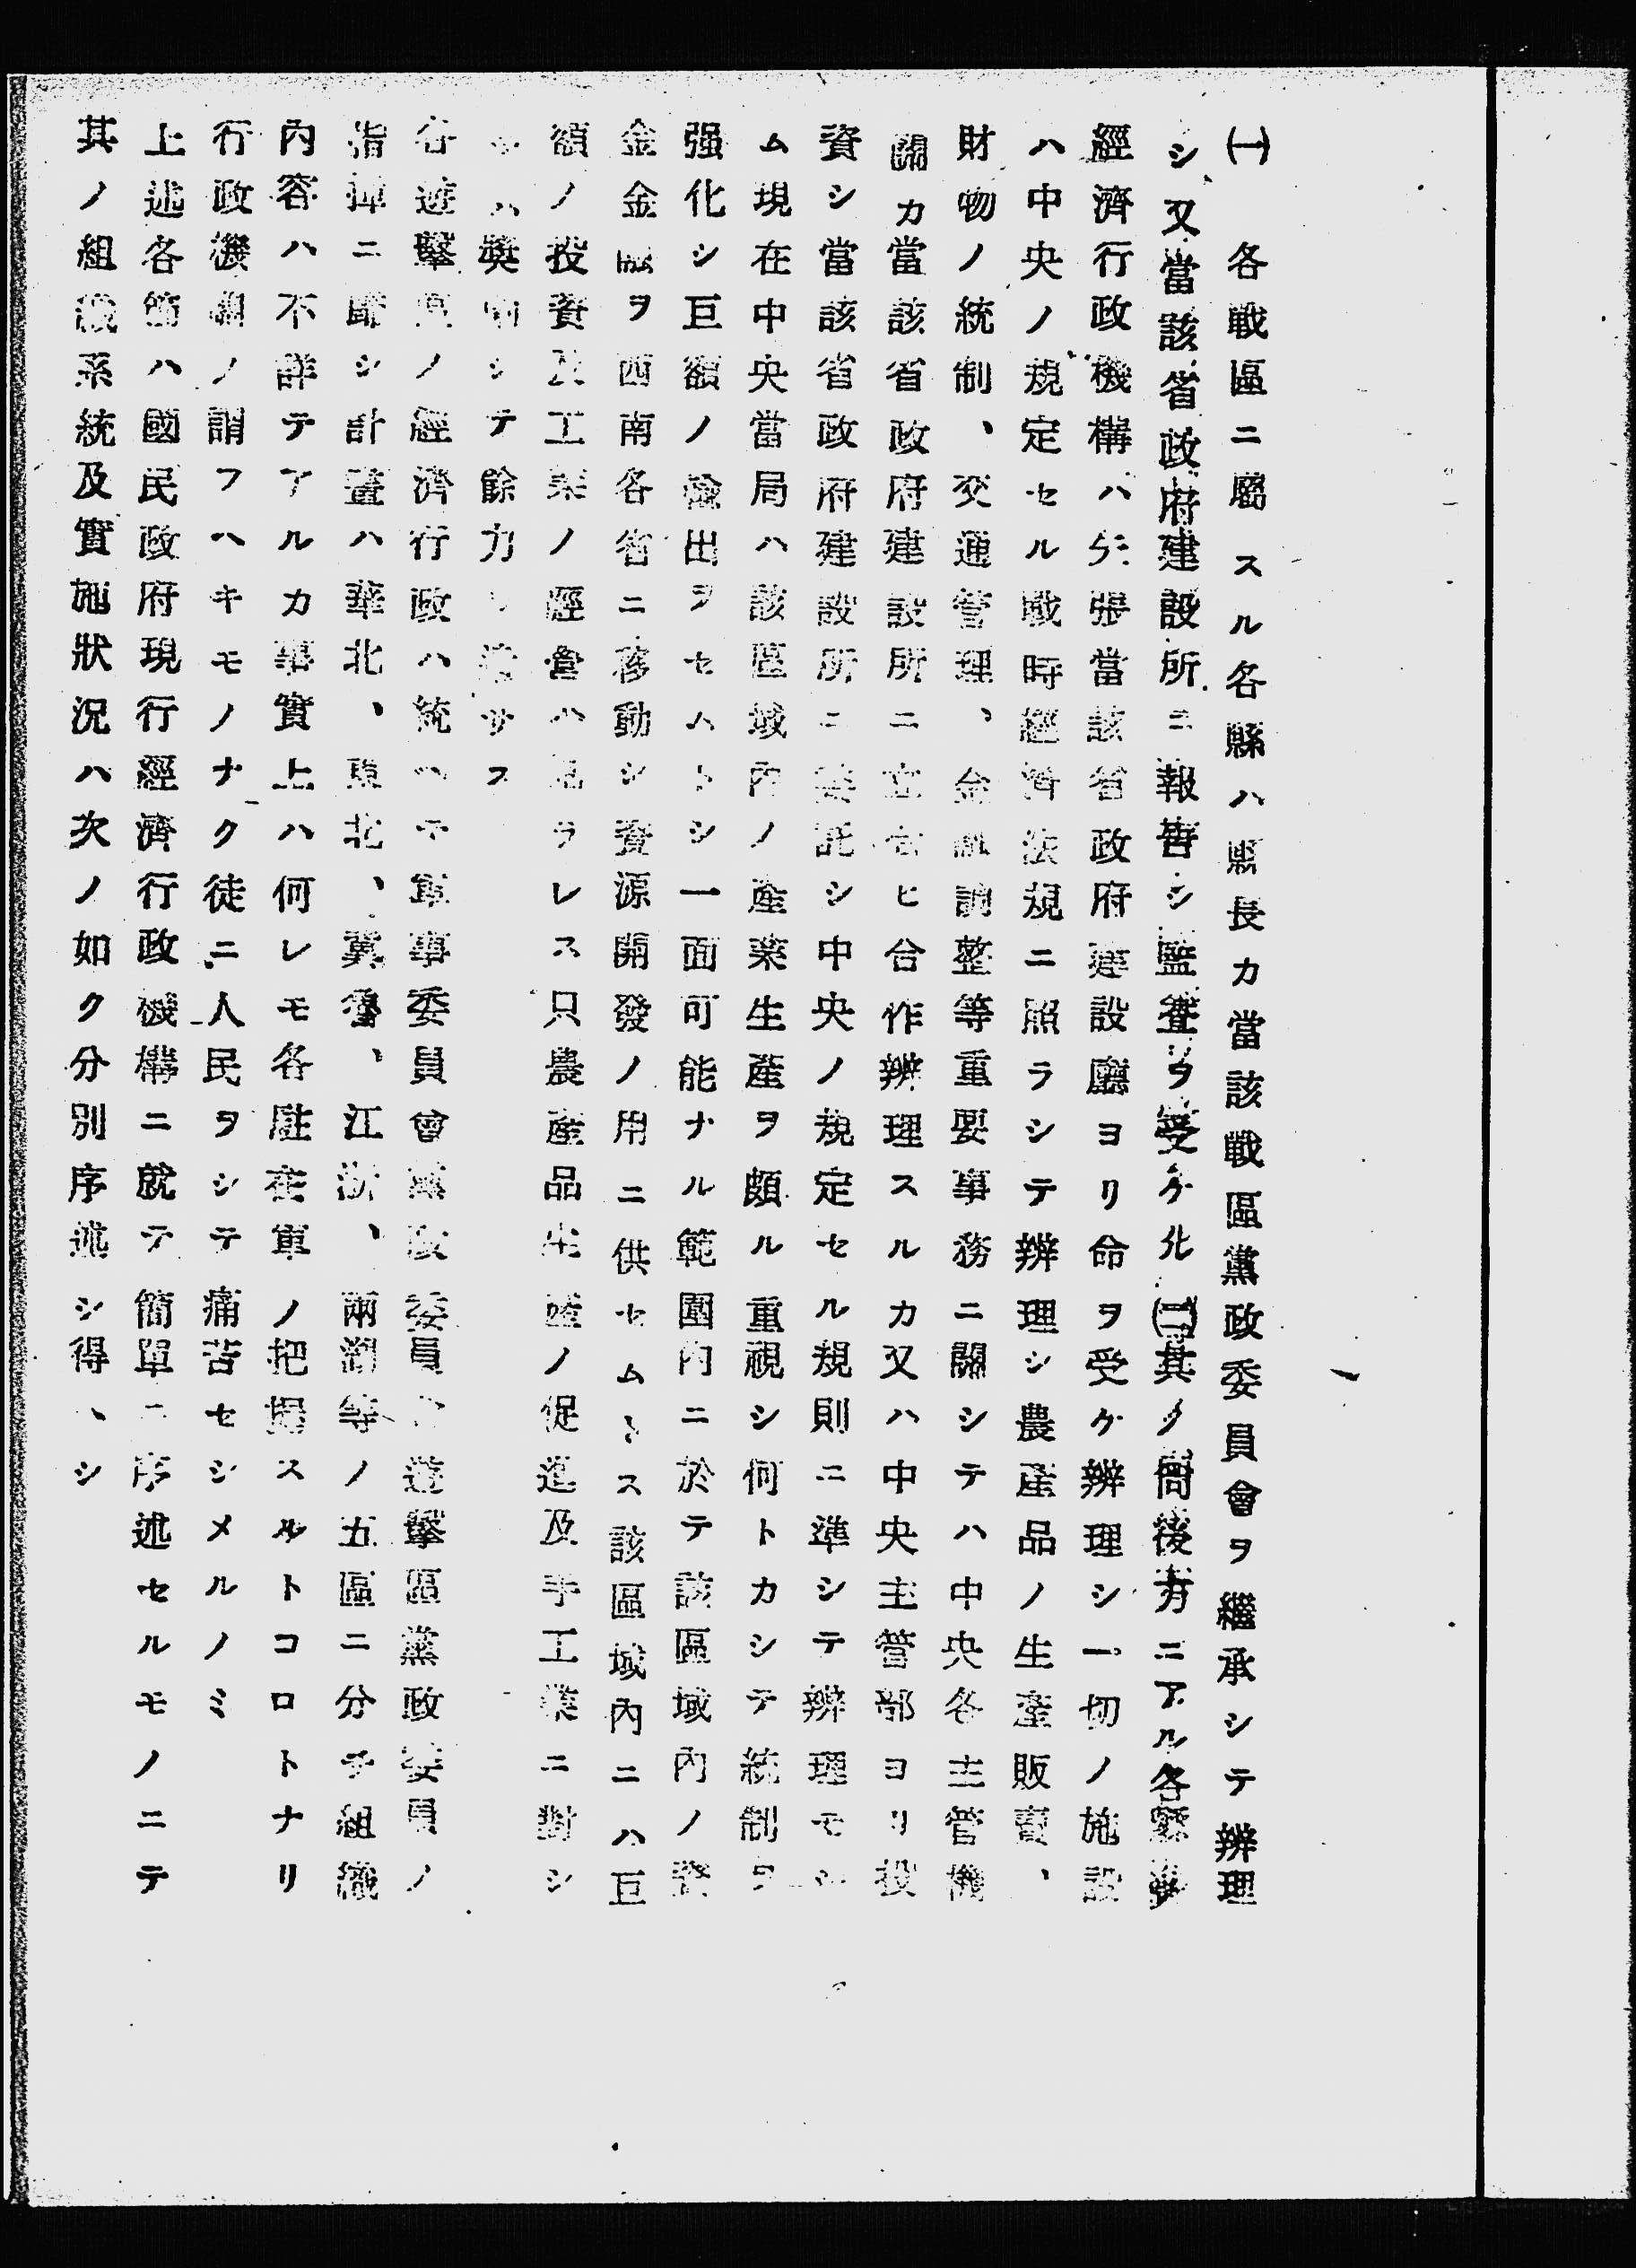 ㈠　各戰區ニ屬スル各縣ハ縣長カ當該戰區黨政委員會ヲ繼承シテ辨理
シ又當該省政府建設所ニ報告シ監督ヲ受ケ
經濟行政機構ハ矢張當該省政府建設廳ヨリ命ヲ受ケ辨理シ一切ノ施設
ハ中央ノ規定セル戰時經濟法規ニ照ラシテ辨理シ農產品ノ生產販賣、
財物ノ統制、交通管理、金融調整等重要事務ニ關シテハ中央各主管機
關カ當該省政府建設所ニ立合ヒ合作辨理スルカ又ハ中央主管部ヨリ投
資シ當該省政府建設所ニ委託シ中央ノ規定セル規則ニ準シテ辨理モシ
ム現在中央當局ハ該區域內ノ產業生產ヲ頗ル重視シ何トカシテ統制ヲ
强化シ巨額ノ輸出ヲセムトシ一面可能ナル範圍內ニ於テ該區域內ノ資
金金融ヲ西南各省ニ移動シ資源開發ノ用ニ供セムトス該區域內ニハ巨
額ノ投資及工業ノ經營ハ見ラレス只農產品生產ノ促進及手工業ニ對シ
テハ獎勵シテ餘力ヲ殘サス
各遊擊區ノ經濟行政ハ統ヘテ軍事委員會黨政委員會遊擊區黨政委員ノ
指揮ニ歸シ計畫ハ華北、東北、冀魯、江浙、兩湖等ノ五區ニ分チ組織
內容ハ不詳テアルカ事實上ハ何レモ各駐在軍ノ把握スルトコロトナリ
行政機關ノ謂フヘキモノナク徒ニ人民ヲシテ痛苦セシメルノミ
上述各節ハ國民政府現行經濟行政機構ニ就テ簡單ニ序述セルモノニテ
其ノ組織系統及實施狀況ハ次ノ如ク分別序述シ得ヘシ